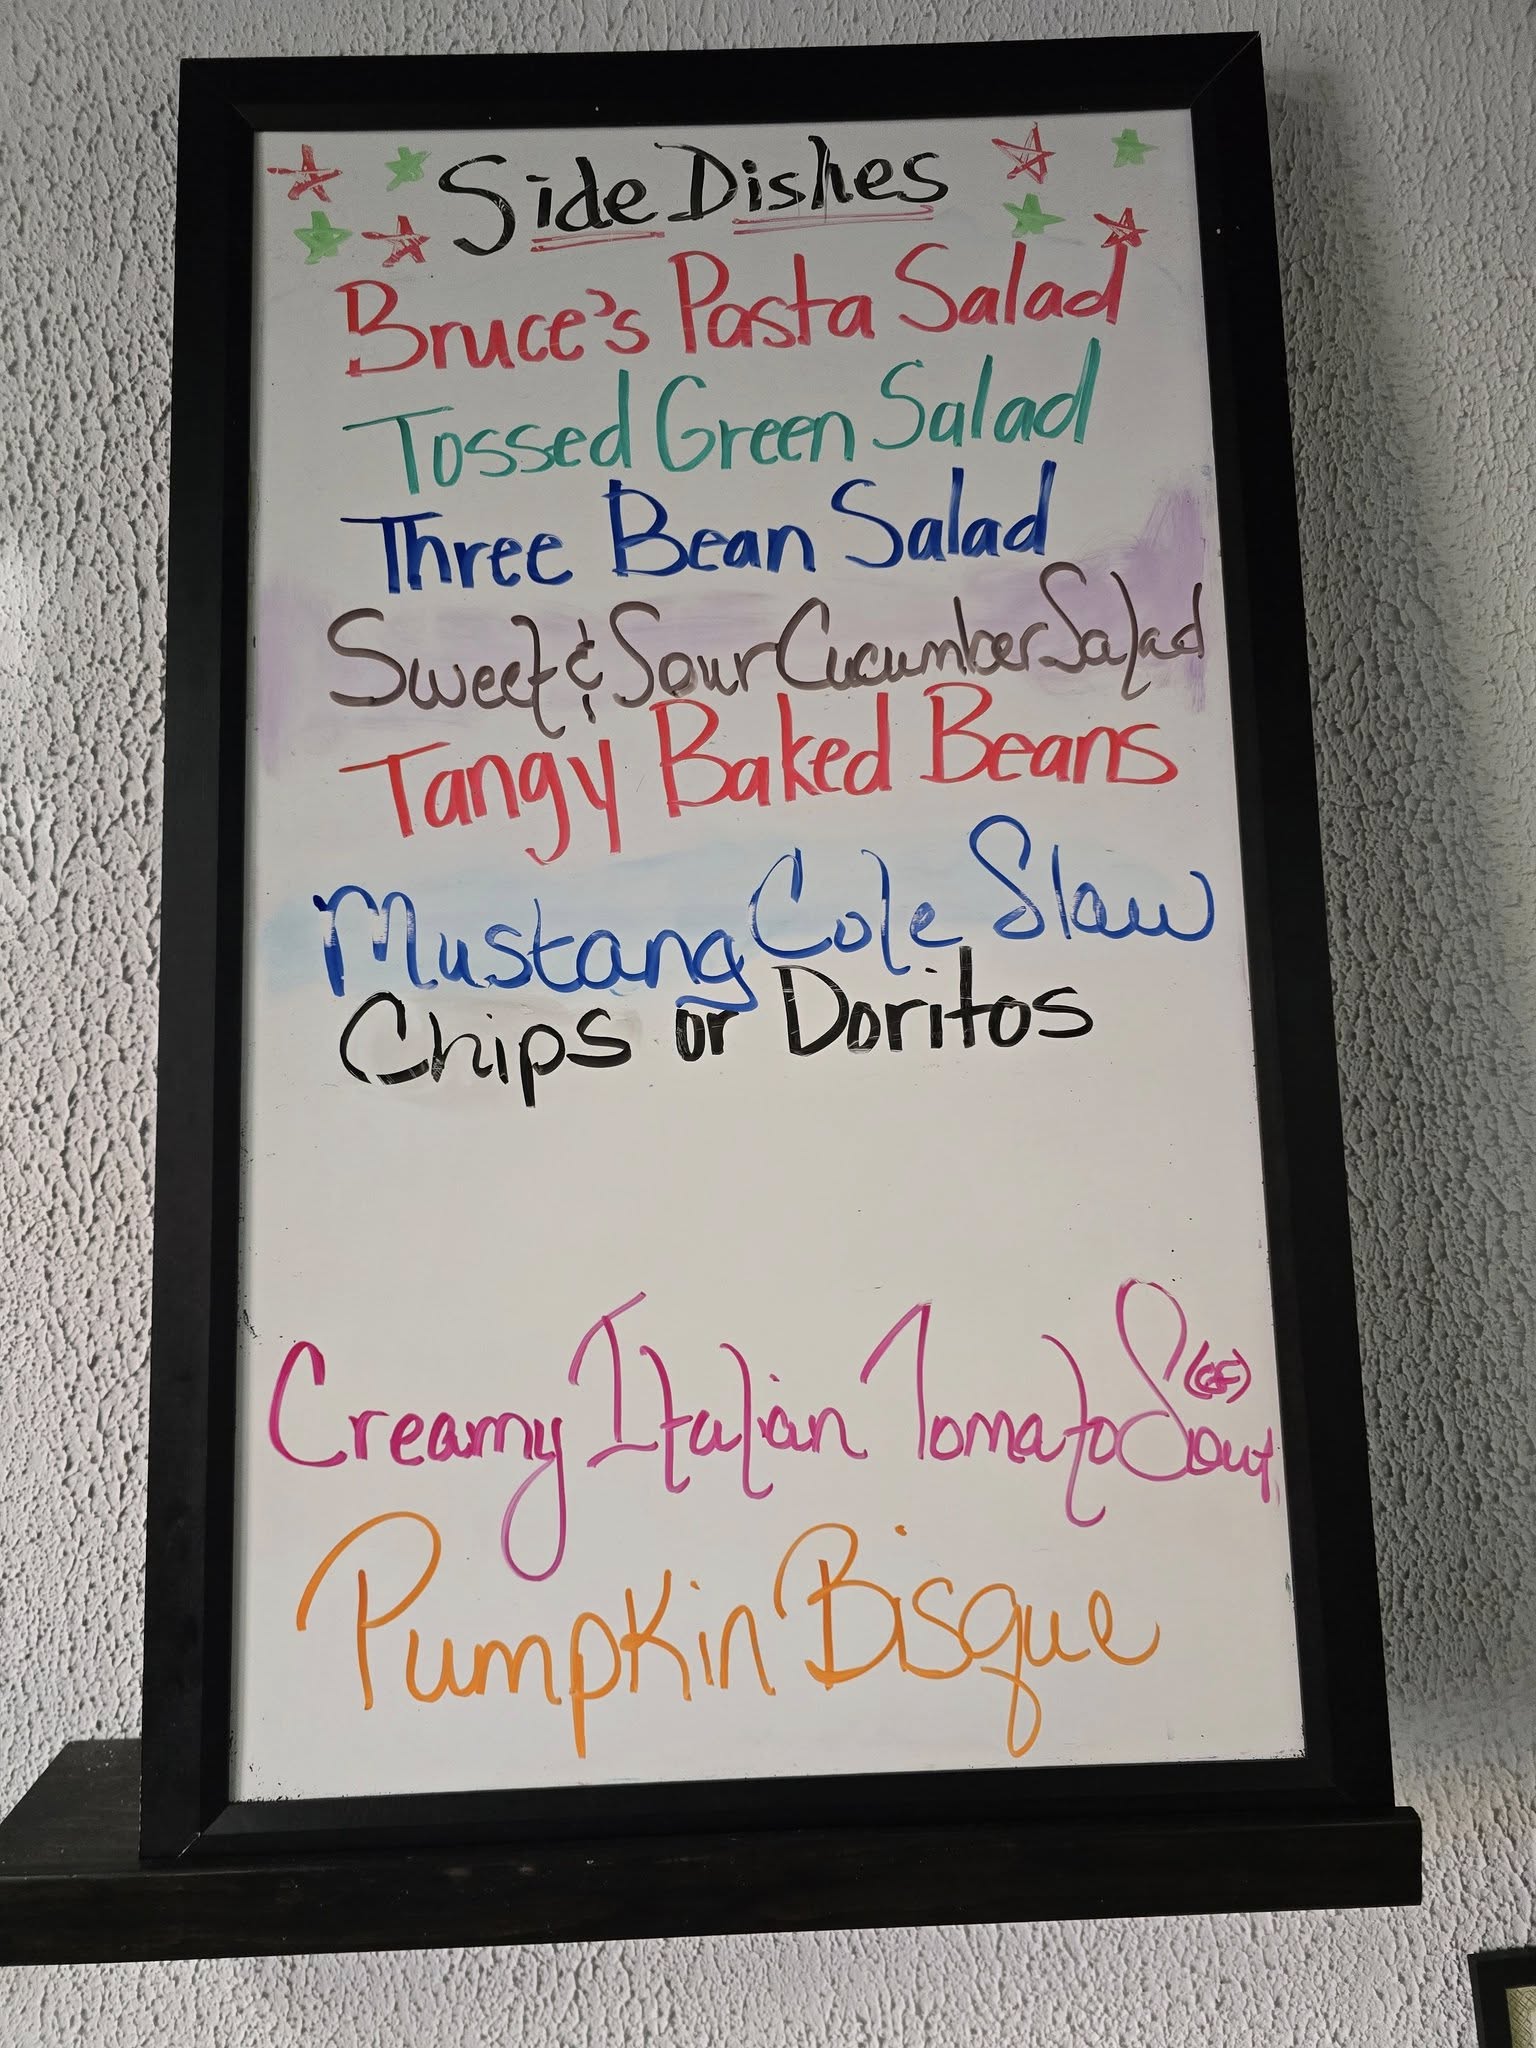 Side Dishes
Bruce's Pasta Salad
Tossed Green Salad
Three Bean Salad
Sweet & Sour Cucumber Salad
Tangy Baked Beans
Mustang Cole Slaw
Chips or Doritos
Creamy Italian Tomato Soup (GF)
Pumpkin Bisque